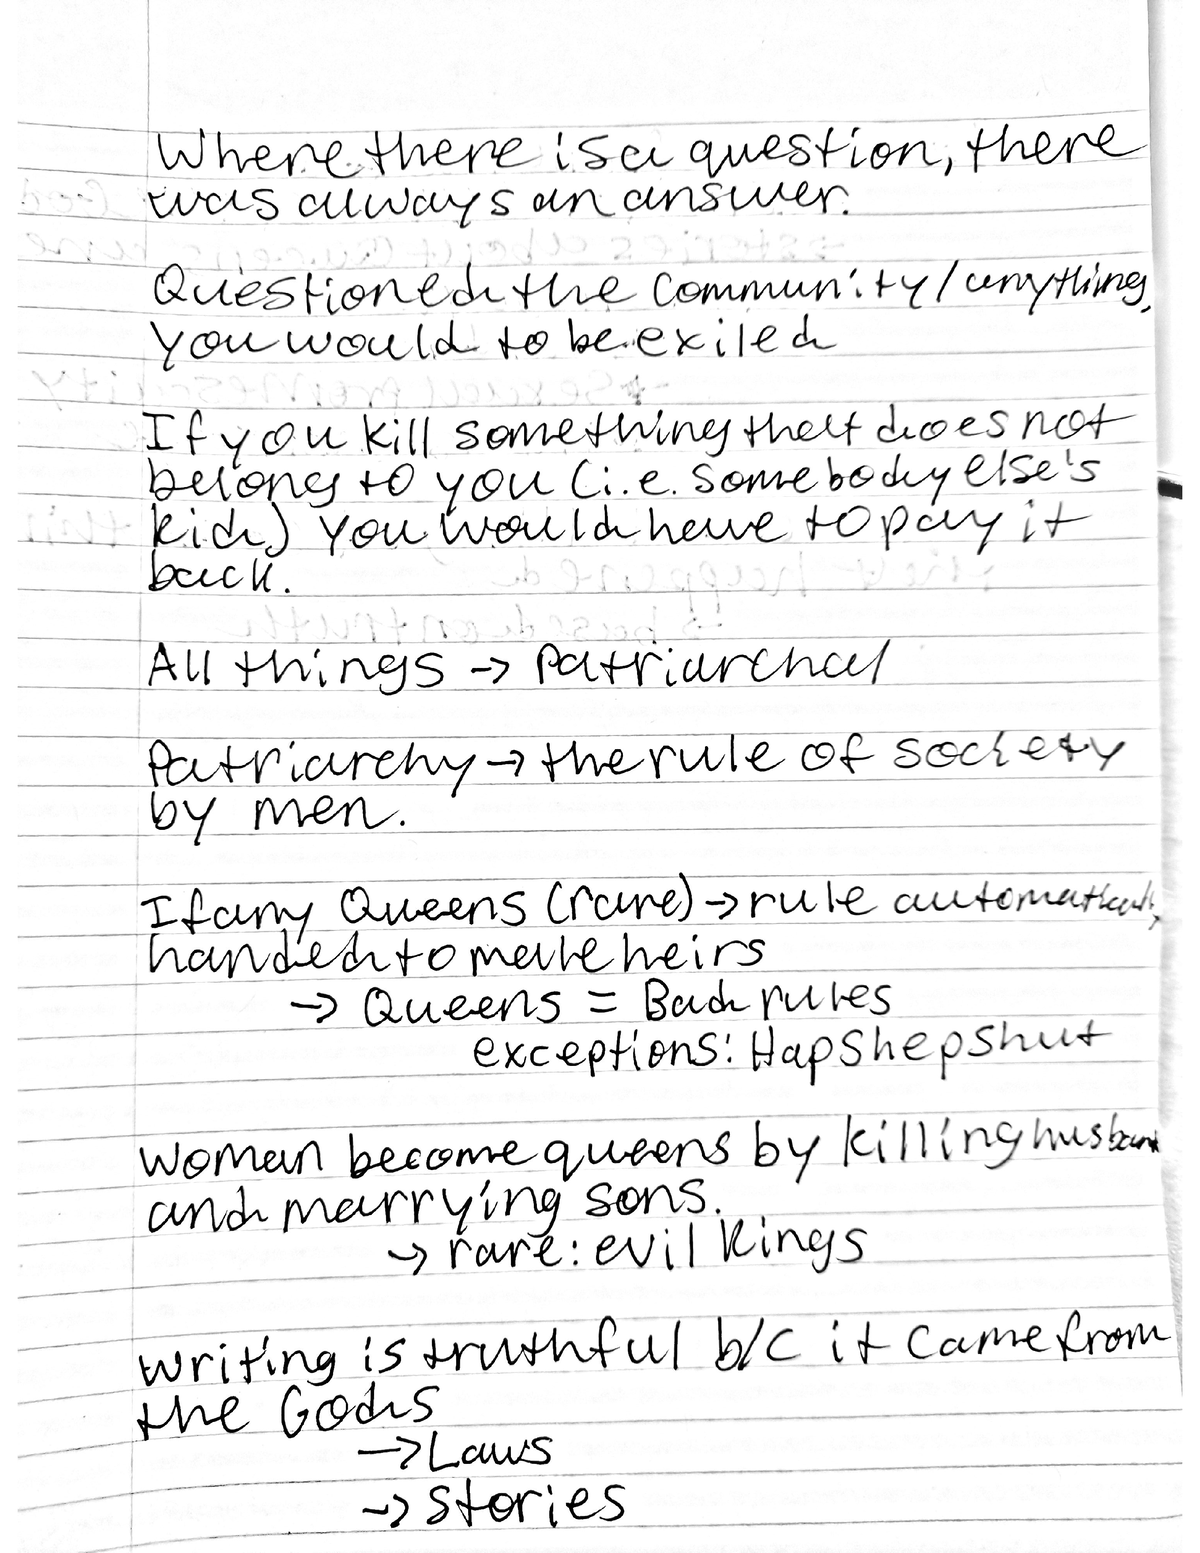 Where there is a question, there
was always an answer.
Questioned the community/anything,
you would to be exiled
If you kill something that does not
belong to you (i.e. somebody else's
kid) you would have to pay it
back.
All things → Patriarchal
Patriarchy → the rule of society
by men.
If any Queens (rare) → rule automatically
handed to male heirs
→ Queens = Bad rules
exceptions: Hapshepshut
Woman become queens by killing husband
and marrying sons.
→ rare: evil Kings
Writing is truthful b/c it came from
the Gods
→ Laws
→ Stories